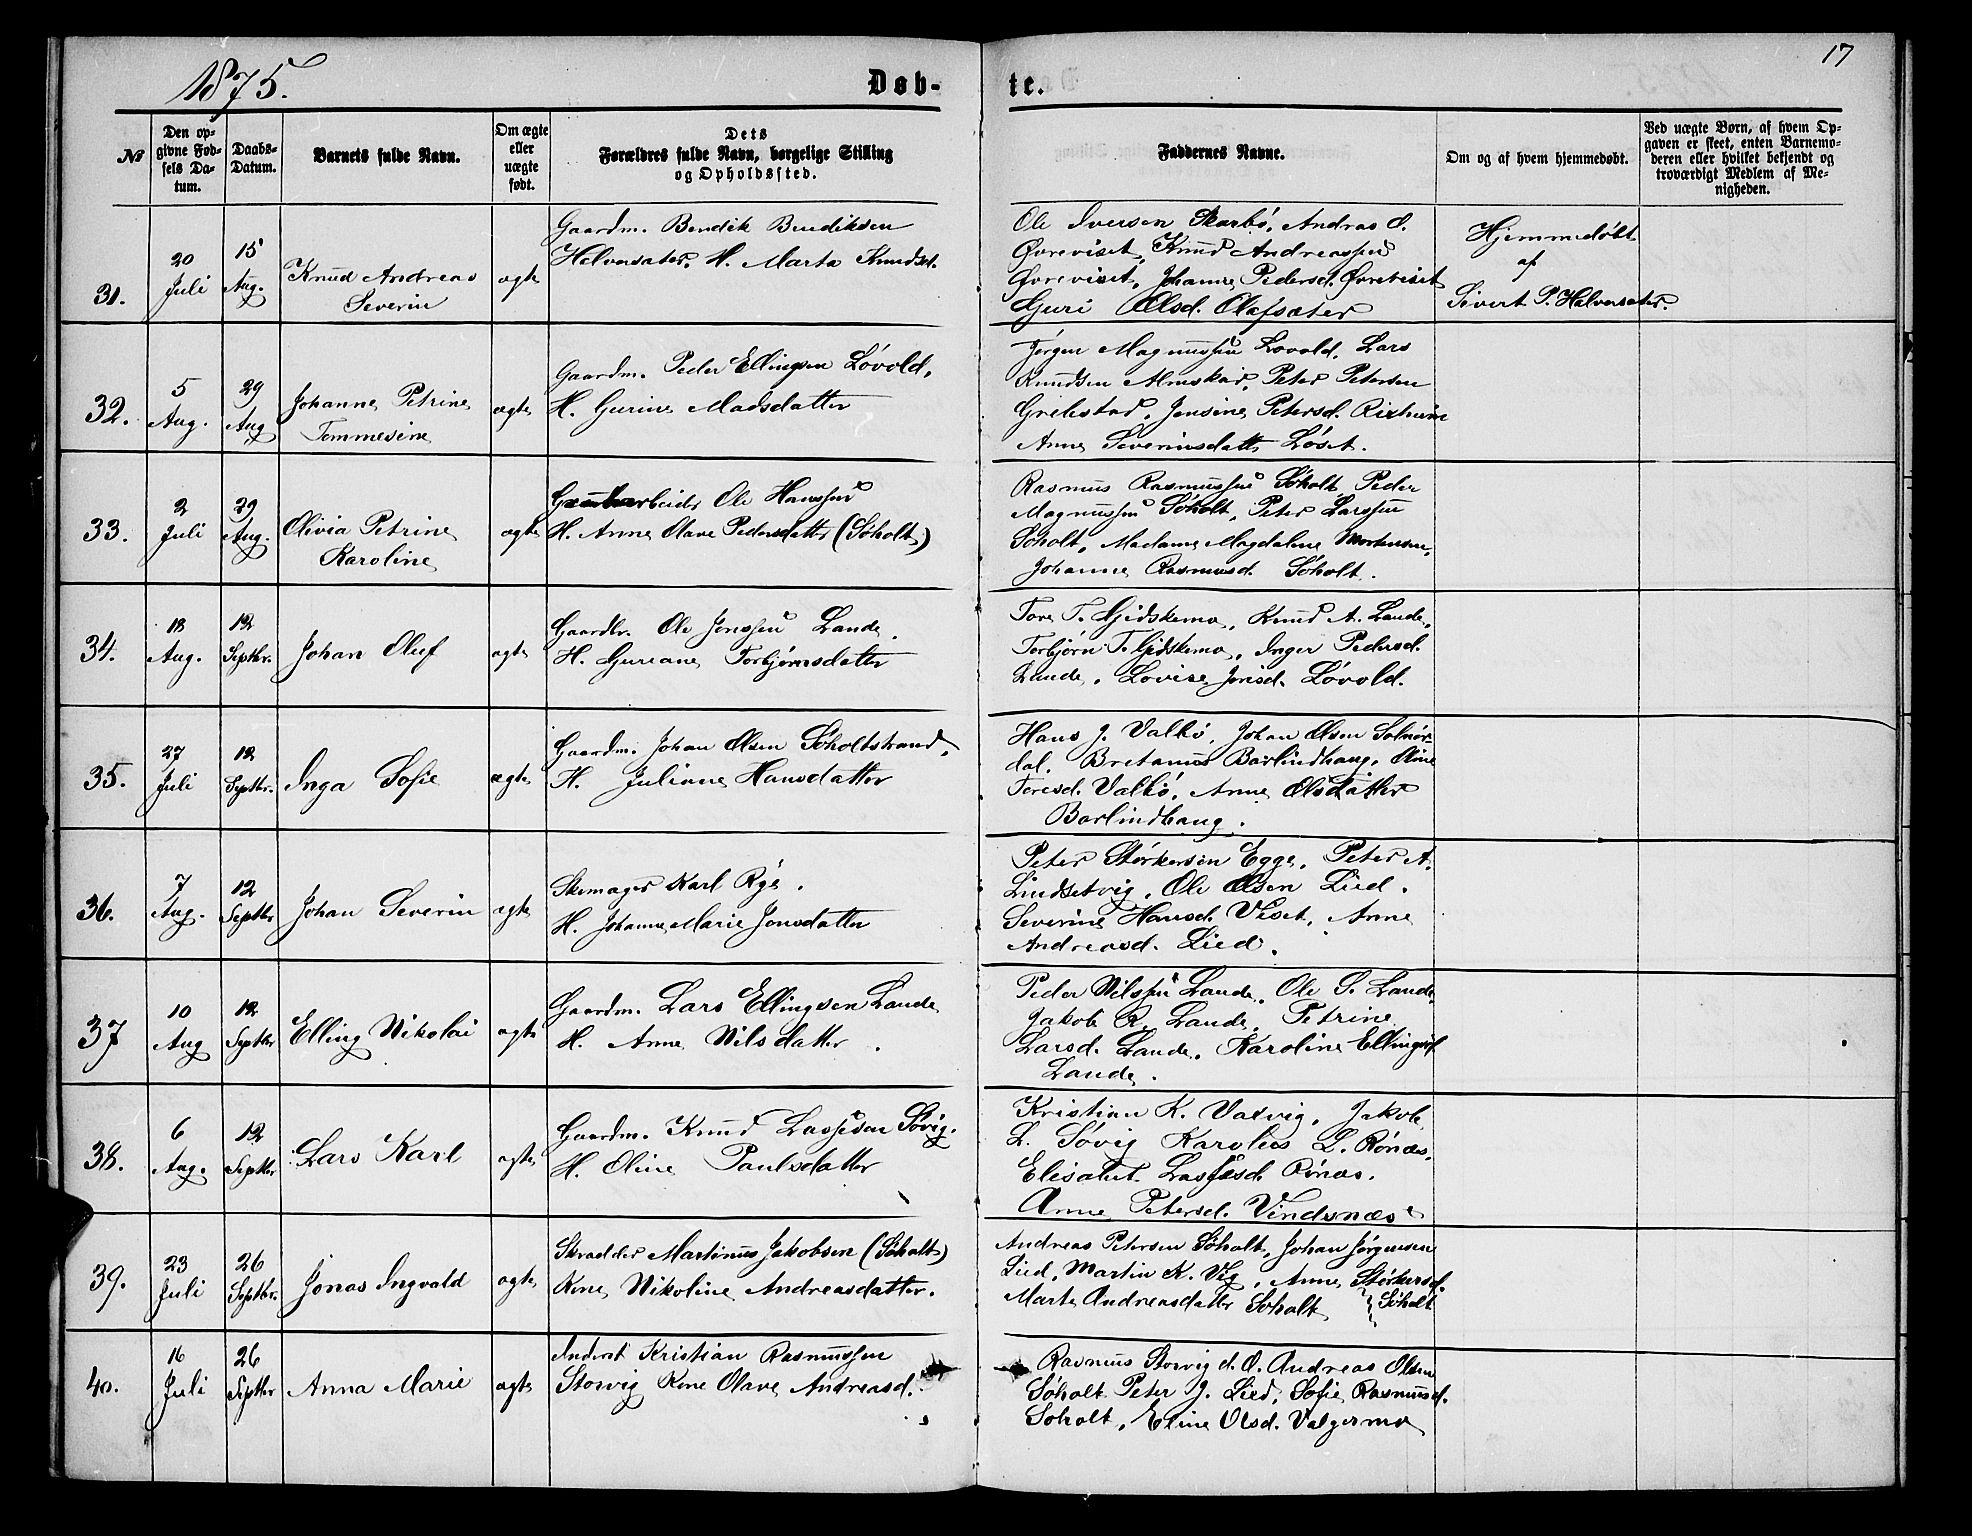 1875.
Døb-
te.
17
№
Den op-
givne Fød-
sels Da-
tum.
Daabs-
Datum.
Barnets fulde Navn.
Om ægte
eller
uægte
født.
Dets
Forældres fulde Navn, borgelige Stilling
og Opholdssted.
Faddernes Navne.
Om og af hvem hjemmedøbt.
Ved uægte Børn, af hvem Op-
gaven er skeet, enten Barnemo-
deren eller hvilket bekjendt og
troværdigt Medlem af Me-
nigheden.
31.
20
Juli
15
Aug.
Knud Andreas
Severin
ægte
Gaardm. Bendik Bendiksen
Helversater. H. Marta Knudsd.
Ole Iversen Skarbö, Andras O.
Øvreviset, Knud Andreassen
Øvreviset, Johanne Pedersd. Øvreviset
Guri Olsd. Olafsæter
Hjemmedöbt
af
Sivert P. Halversæter.
32.
5
Aug.
29
Aug
Johanne Petrine
Tommesine
ægte
Gaardm. Peder Ellingsen Lövold,
H. Gurine Madsdatter
Jörgen Magnussen Lovold, Lars
Knudsen Almskar, Peter Petersen
Grebstad, Jensine Petersd.
Anne Severinsdatt. Löset.
33.
2
Juli
29
Aug.
Olivia Petrine
Karoline
ægte
Ole Hanssen
H. Anne Olave Pedersdatter (Söholt)
Rasmus Rasmussen Söholt Peder
Magnussen Söholt, Peter Larssen
Söholt, Madame Magdalene Mortensen,
Johanne Rasmusd. Söholt.
34.
18
Aug.
12
Septbr.
Johan Oluf
ægte
Gaardbr. Ole Jonssen Lande.
H. Guriane Torbjørnsdatter
Tore T. Gjidskemo, Knud A. Lande,
Torbjörn T. Gidskemo, Inger Pedersd.
Lande, Lovise Jonsd. Lövold.
35.
27
Juli
12
Septbr.
Inga Sofie
ægte
Gaardm. Johan Olsen Söholtstrand,
H. Juliane Hansdatter
Hans J. Valbö, Johan Olsen Solnör-
dal. Bretanus Barlindhaug, Oline
Toresd. Valbö, Anne Olsdatter
Barlindhaug.
36.
7
Aug.
12
Septbr
Johan Severin
ægte
Skomager Karl Rye.
H. Johanne Marie Jonsdatter
Peter Störkersen Egge, Peter A.
Lindsetvig, Ole Olsen Lied.
Severine Hansd. Viset, Anne
Andreasd. Lied.
37
10
Aug
12
Septbr
Elling Nikolai
ægte
Gaardm. Lars Ellingsen Lande
H. Anne Nilsdatter.
Peder Nilssen Lande, Ole S. Lande,
Jakob R. Lande, Petrine
Larsd. Lande, Karoline Ellingsd
Lande.
38.
6
Aug.
12
Septbr
Lars Karl
ægte
Gaardm. Knud Lassesen Sövig.
H. Oline Paulsdatter
Kristian K. Vaxvig, Jakob
L. Sövig Karolus L. Rönæs,
Elisabet Lassesd Rönæs.
Anne Petersd. Vindsnæs
39.
23
Juli
26
Septbr.
Jonas Ingvald
ægte
Skrædder Martinus Jakobsen (Söholt)
Kone Nikoline Andreasdatter.
Andreas Petersen Söholt, Johan Jörgensen
Lied, Martin K. Vig, Anne Störkersd.
Marte Andreasdatter Soholt } Söholt
40.
16
Juli
26
Septbr
Anna Marie
ægte
Inderst Kristian Rasmussen
Storvig Kone Olave Andreasd.
Rasmus Storvig d. O. Andreas Olsen
Söholt Peter J. Lied, Sofie Rasmusd.
Söholt, Eline Olsd. Valgermo